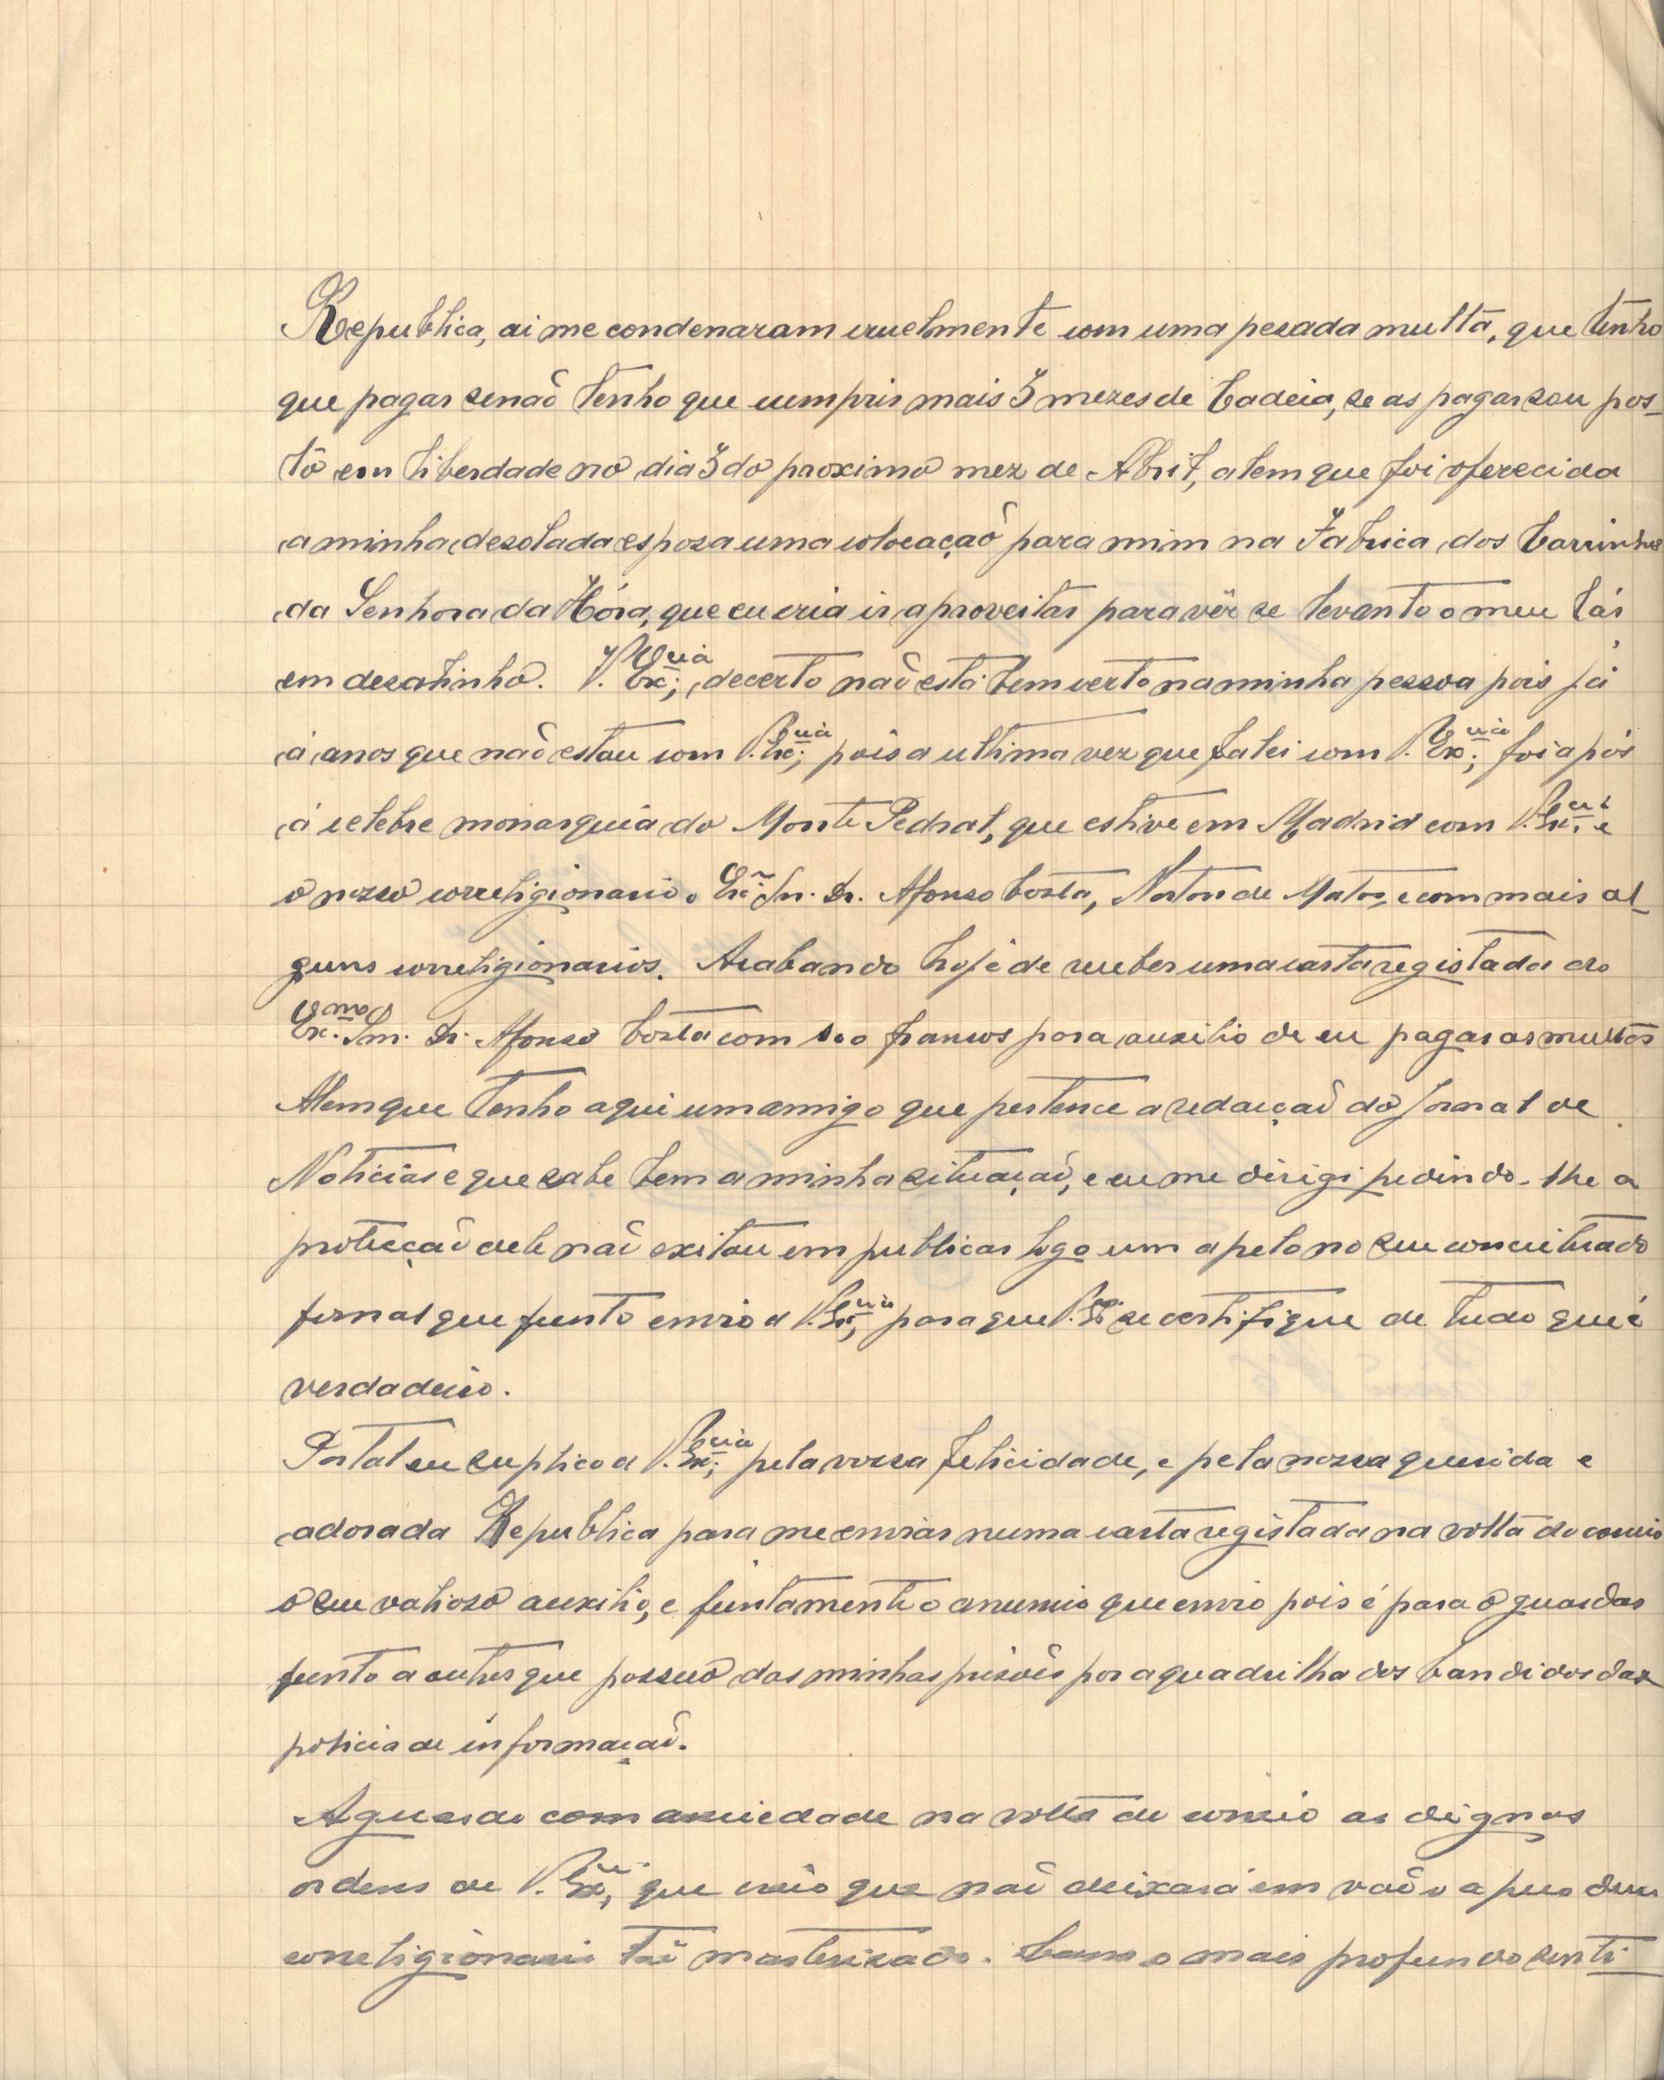 Republica, ai me condenaram cruelmente com uma pesada multa, que tenho
que pagar senaõ tenho que cumprir mais 3 mezes de Cadeia, se as pagar sou pos-
to em liberdade no dia 3 do proximo mez de Abril, alem que foi oferecida
a minha desolada esposa uma colocaçaõ para mim na Fabrica dos Carrinhos
da Senhora da Hóra, que eu cria ir aproveitar para vêr se levanto o meu lár
em desatinho. V. Ex.cia; decerto naõ está bem certo na minha pessoa pois já
á anos que naõ estou com V. Ex.cia; pois a ultima vez que falei com V. Ex.cia; foi após
á celebre monarquia do Monte Pedral, que estive em Madrid com V. Ex.cia; e
o nosso correligionario o Ex.mo Snr. Dr. Afonso Costa, Norton de Matos, e com mais al-
guns correligionarios. Acabando hoje de receber uma carta registada do
Ex.mo Snr. Dr. Afonso Costa com 100 francos para auxilio de eu pagar as multas
Alem que tenho aqui um amigo que pertence a redacçaõ do Jornal de
Noticias e que sabe bem a minha situaçaõ, e eu me dirigi pedindo-lhe a
protecçaõ dele naõ exitou em publicar logo um apelo no seu conceituado
jornal que junto envio a V. Ex.cia; para que V. Ex.cia se certifique de tudo que é
verdadeiro.
Portal eu suplico a V. Ex.cia; pela vossa felicidade, e pela nossa querida e
adorada Republica para me enviar numa carta registada na volta do correio
o seu valioso auxilio, e juntamente o anuncio que envio pois é para o guardar
junto a outros que possuo das minhas prisões por a quadrilha dos bandidos da
policia de informaçaõ.
Aguardo com ansiedade na volta do correio as dignas
ordens de V. Ex.cia; que creio que naõ deixará em vaõ o apelo dum
correligionario taõ marterisado. Com o mais profundo senti-